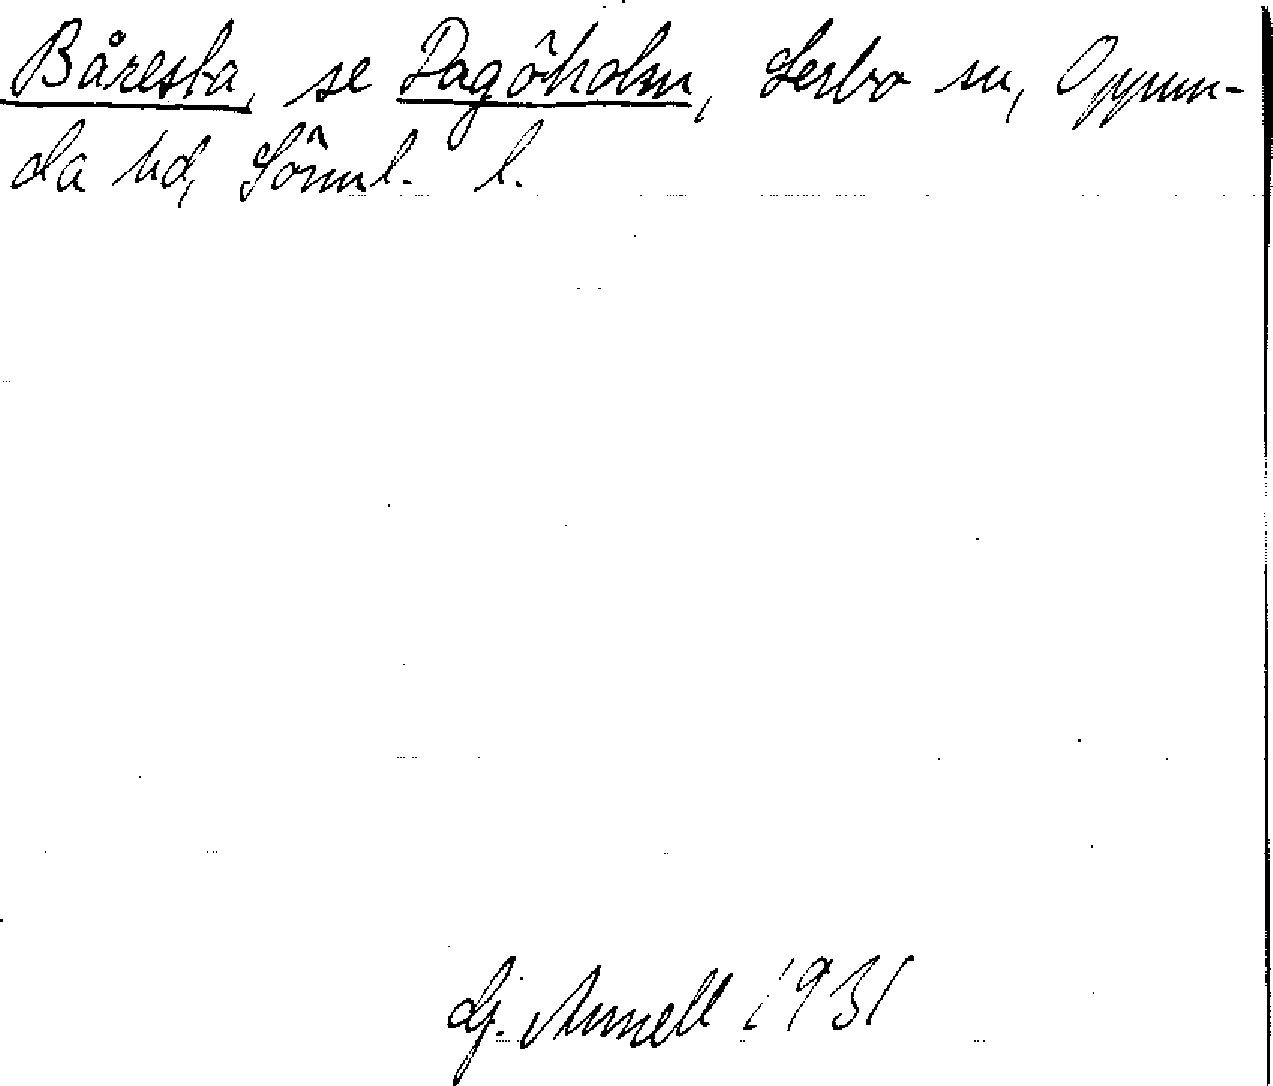 Båresta, se Dagöholm, Lerbo sn, Oppun-
da hd, Sörml. l.
Gj. Annell 1931